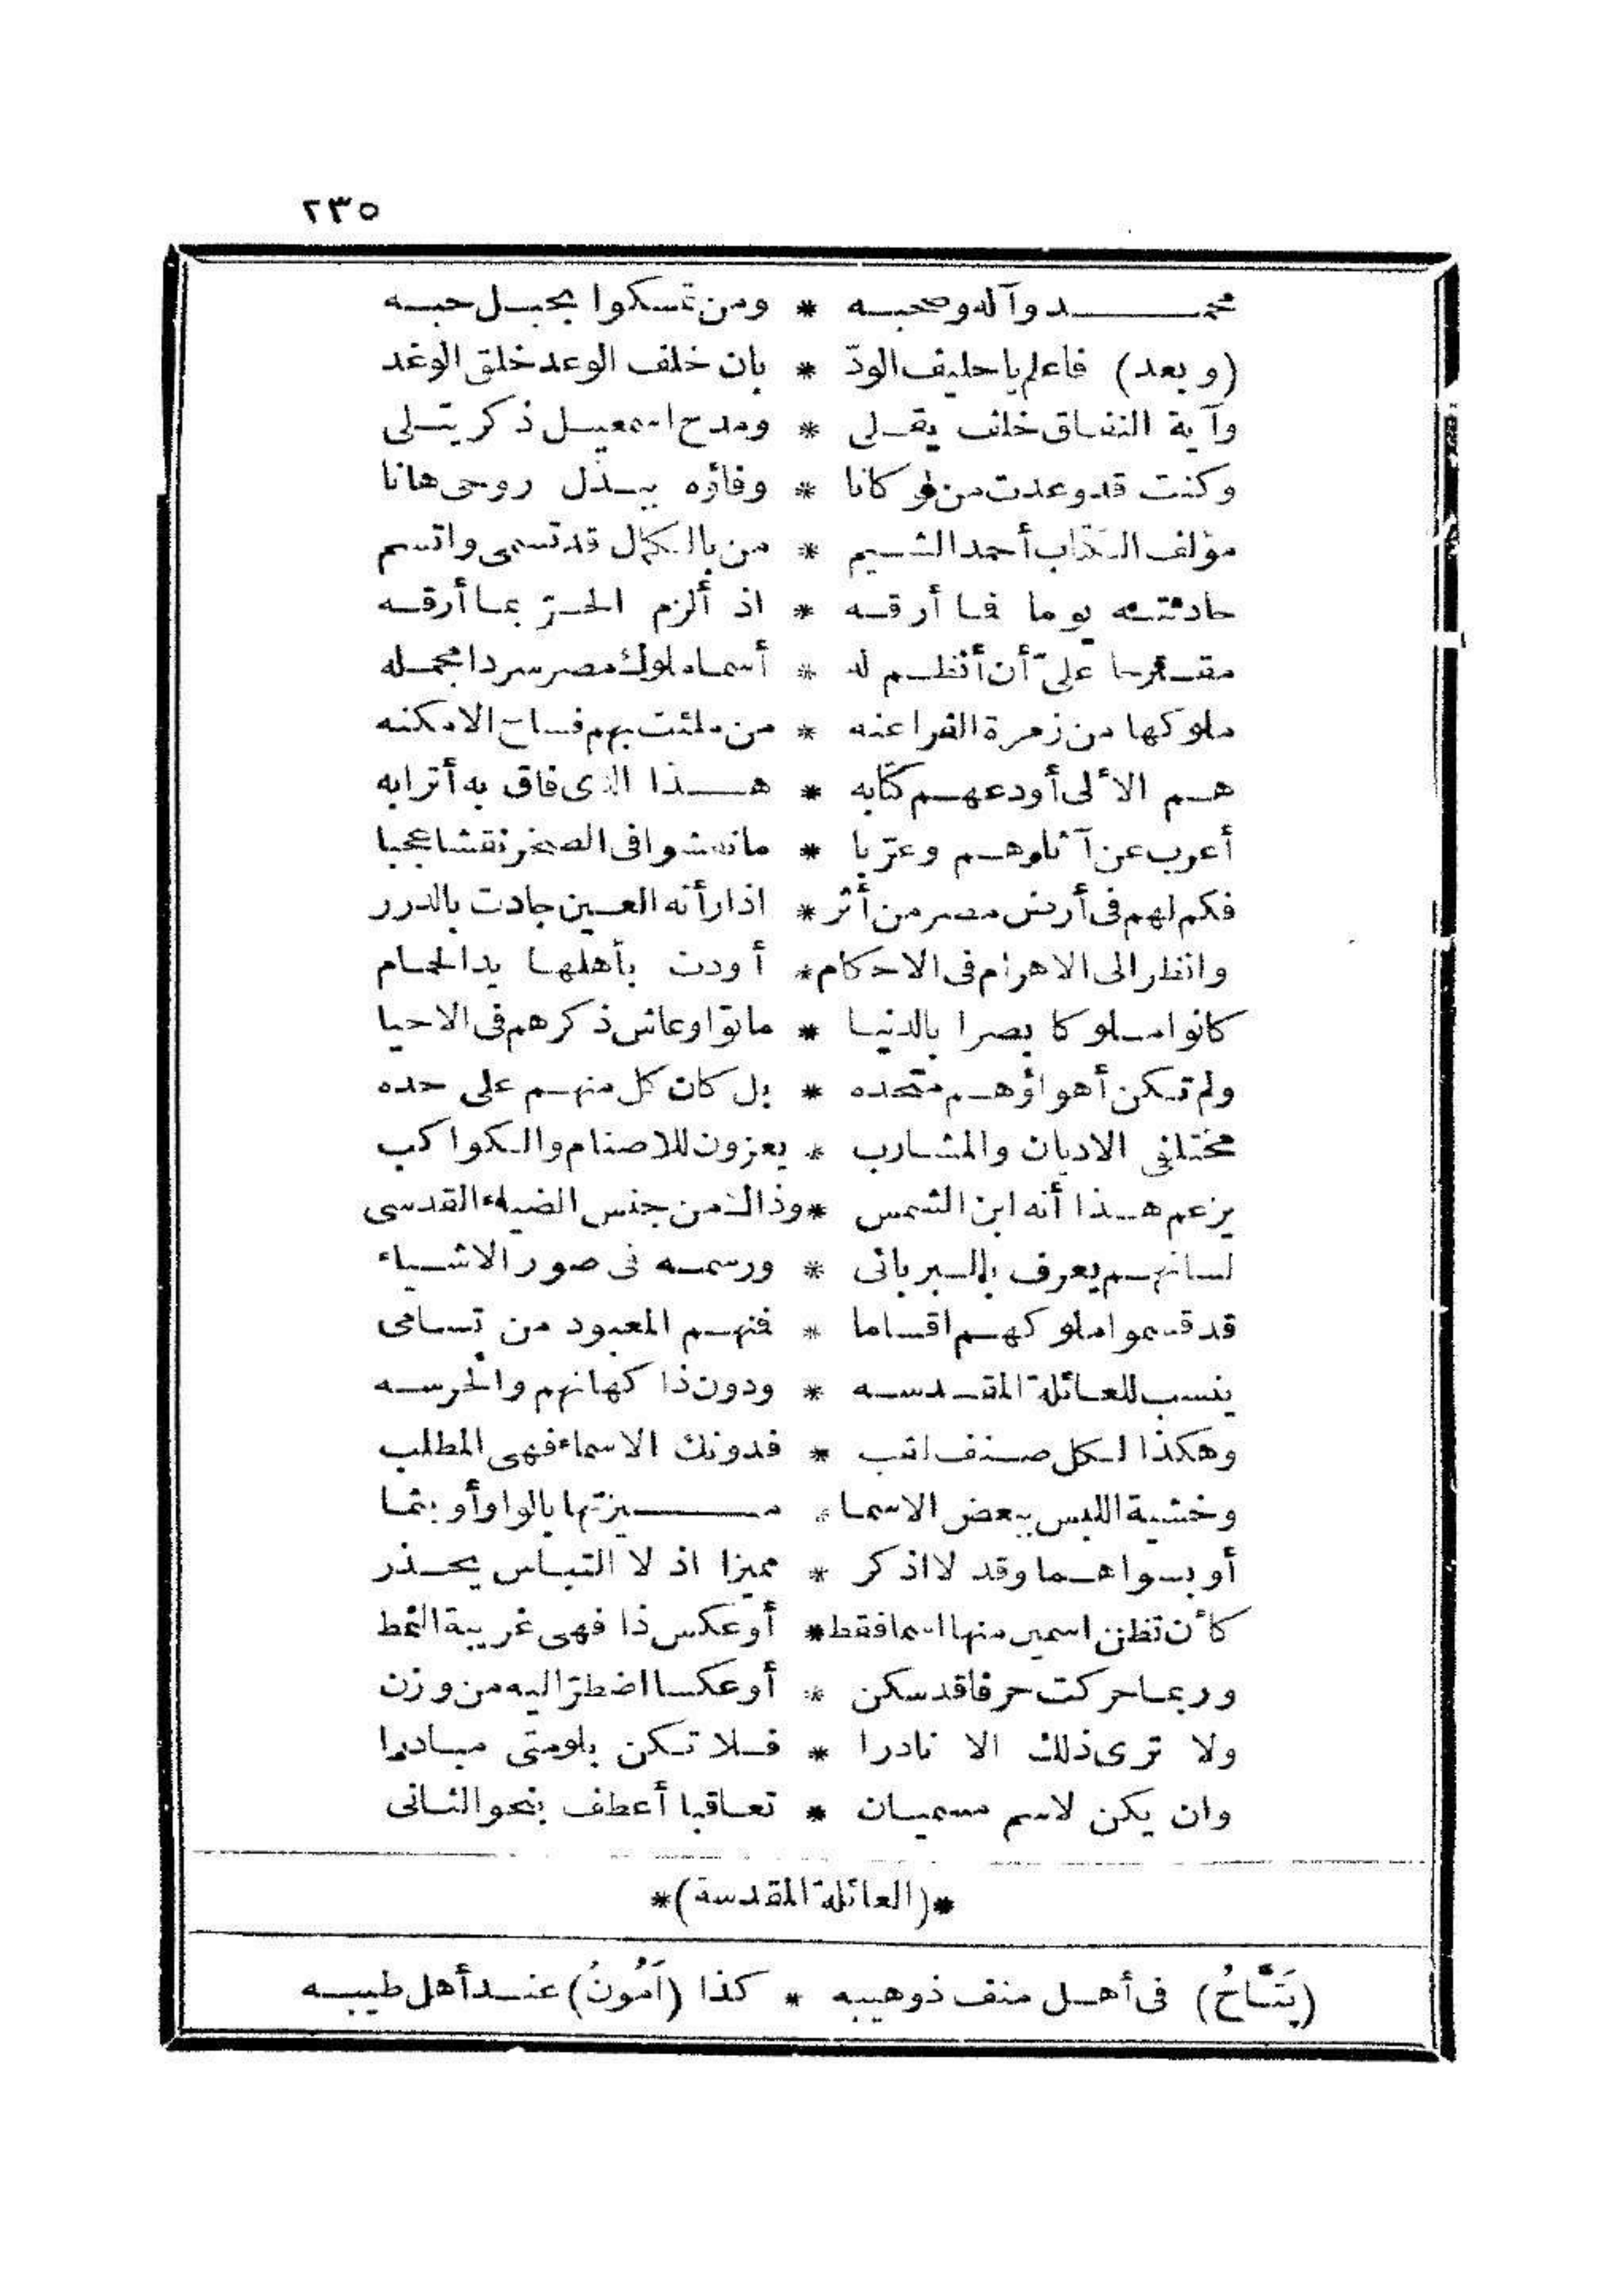 ٢٣٥
محمد وآله وصحبه * ومن تمسكوا بحبل حبه
(وبعد) فاعلم يا حليف الودّ * بان خلف الوعد خلق الوغد
وآية النفاق خلف يقلى * ومدح اسمعيل ذكر يتلى
وكنت قد وعدت من لو كانا * وفاؤه ببذل روحى هانا
مؤلف الكتاب أحمد الشيم * من بالكمال قد تسمى واتسم
حادثته يوما فما أرقه * اذ ألزم الحرّ بما أرقه
مقترحا علىّ أن أنظم له * أسماء ملوك مصر سردا مجمله
ملوكها من زمرة الفراعنه * من ملئت بهم فساح الامكنه
هم الألى أودعهم كتابه * هذا الذى فاق به أترابه
أعرب عن آثارهم وعرّبا * ما نقشوا فى الصخر نقشا عجبا
فكم لهم فى أرض مصر من أثر * اذا رأته العين جادت بالدرر
وانظر الى الاهرام فى الاحكام * أودت بأهلها يد الحمام
كانوا ملوكا بصرا بالدنيا * ماتوا وعاش ذكرهم فى الاحيا
ولم تكن أهواؤهم متحده * بل كان كل منهم على حده
مختلفى الاديان والمشارب * يعزون للاصنام والكواكب
يزعم هذا أنه ابن الشمس * وذاك من جنس الضياء القدسى
لسانهم يعرف بالبربائى * ورسمه فى صور الاشياء
قد قسموا ملوكهم اقساما * فمنهم المعبود من تسامى
ينسب للعائلة المقدسه * ودون ذا كهانهم والحرسه
وهكذا لكل صنف لقب * فدونك الاسماء فهى المطلب
وخشية اللبس ببعض الاسما * ميزتها بالواو أو بثما
أو بسواهما وقد لا اذكر * مميزا اذ لا التباس يحذر
كأن تظنن اسمين منها اسما فقط * أو عكس ذا فهى غريبة النمط
وربما حركت حرفا قد سكن * أو عكسا اضطرّ اليه من وزن
ولا ترى ذلك الا نادرا * فلا تكن بلومتى مبادرا
وان يكن لاسم مسميان * تعاقبا أعطف بنحو الثانى
*(العائلة المقدسة)*
(پَتَّاحُ) فى أهل منف ذو هيبه * كذا (آمُونُ) عند أهل طيبه